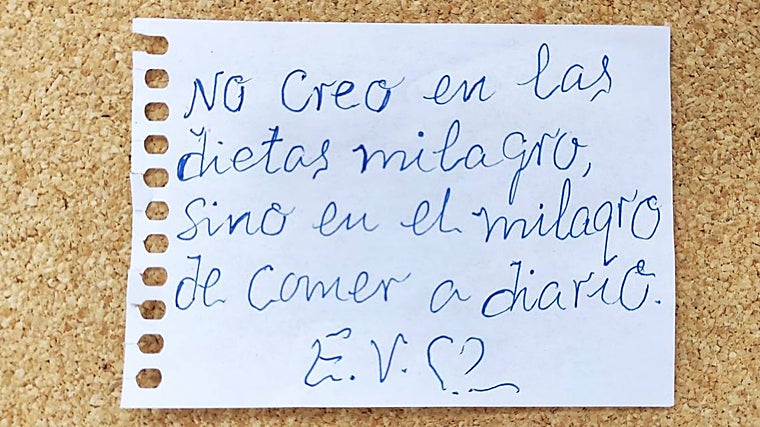 No creo en las
dietas milagro,
sino en el milagro
de comer a diario.
E.V.